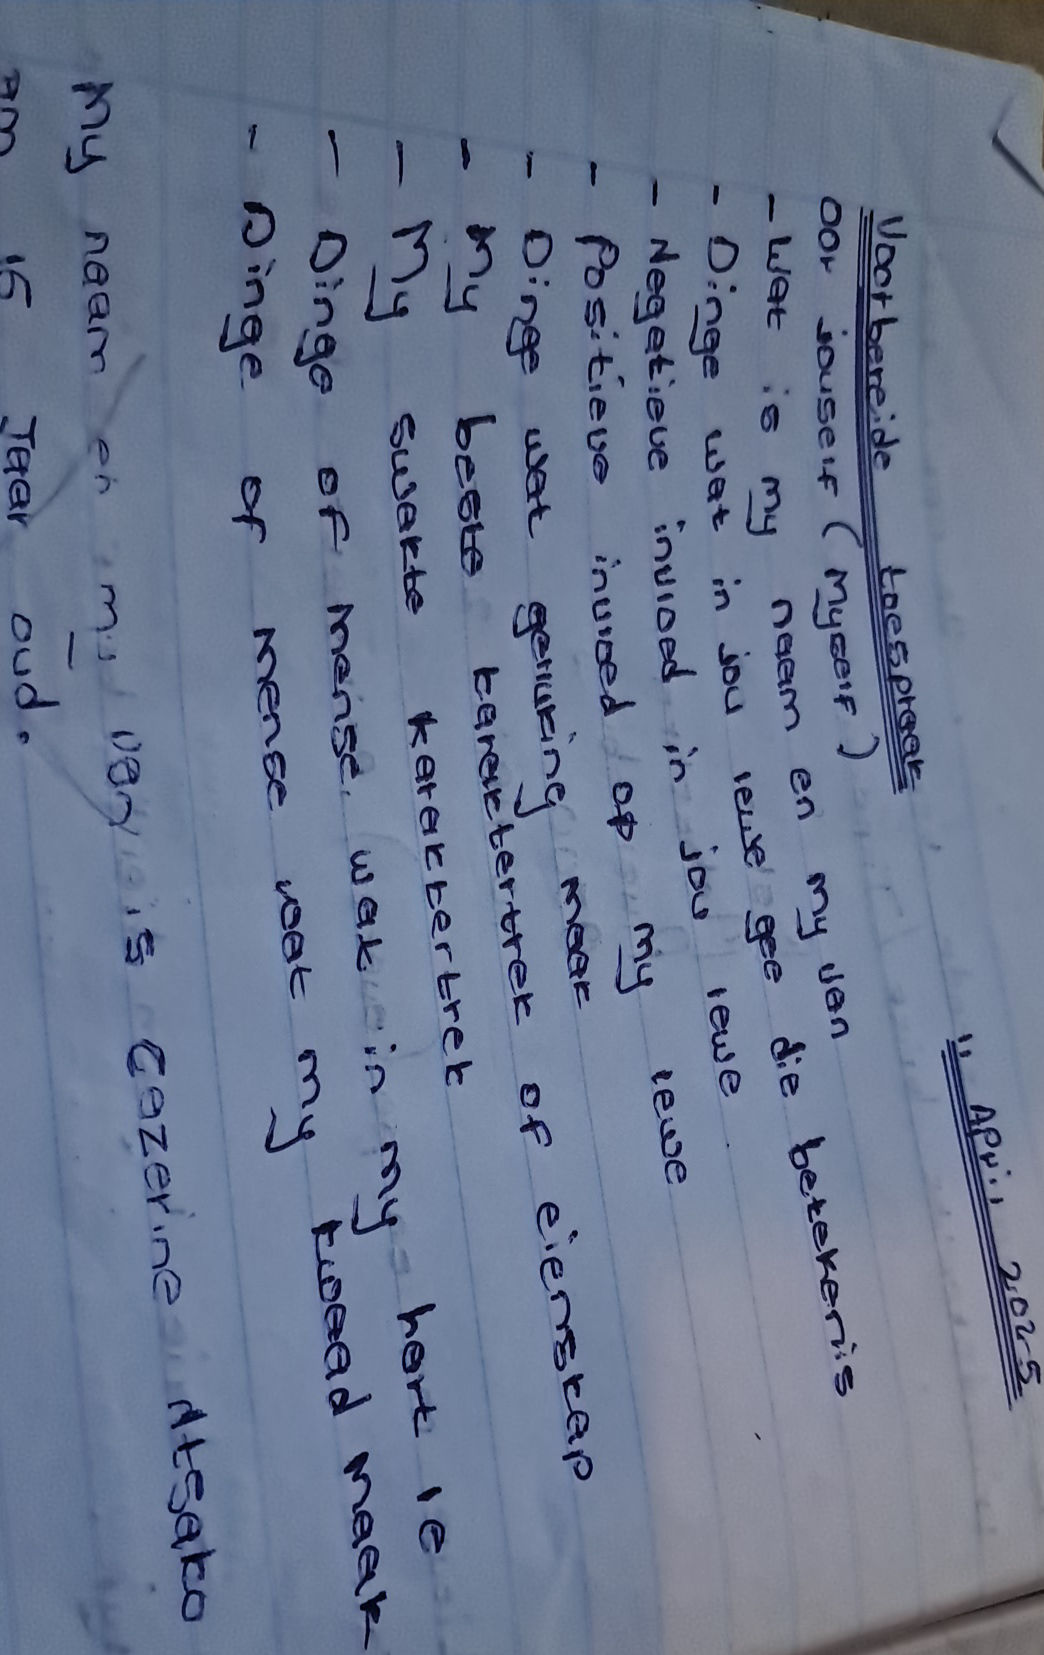 11 April 2025
Voorbereide toespraak
oor jouself (Myself)
- Wat is my naam en my van
- Dinge wat in jou lewe gee die betekenis
- Negatieve invloed in jou lewe
- Positieve invloed op my lewe
- Dinge wat gelluking maak
- My beste karaktertrek of eienskap
- My swakte karaktertrek
- Dinge of mense wak in my hart le
- Dinge of mense wat my kwaad maak
My naam en my van is Cazerine Ntsako
am 15 Jaar oud.